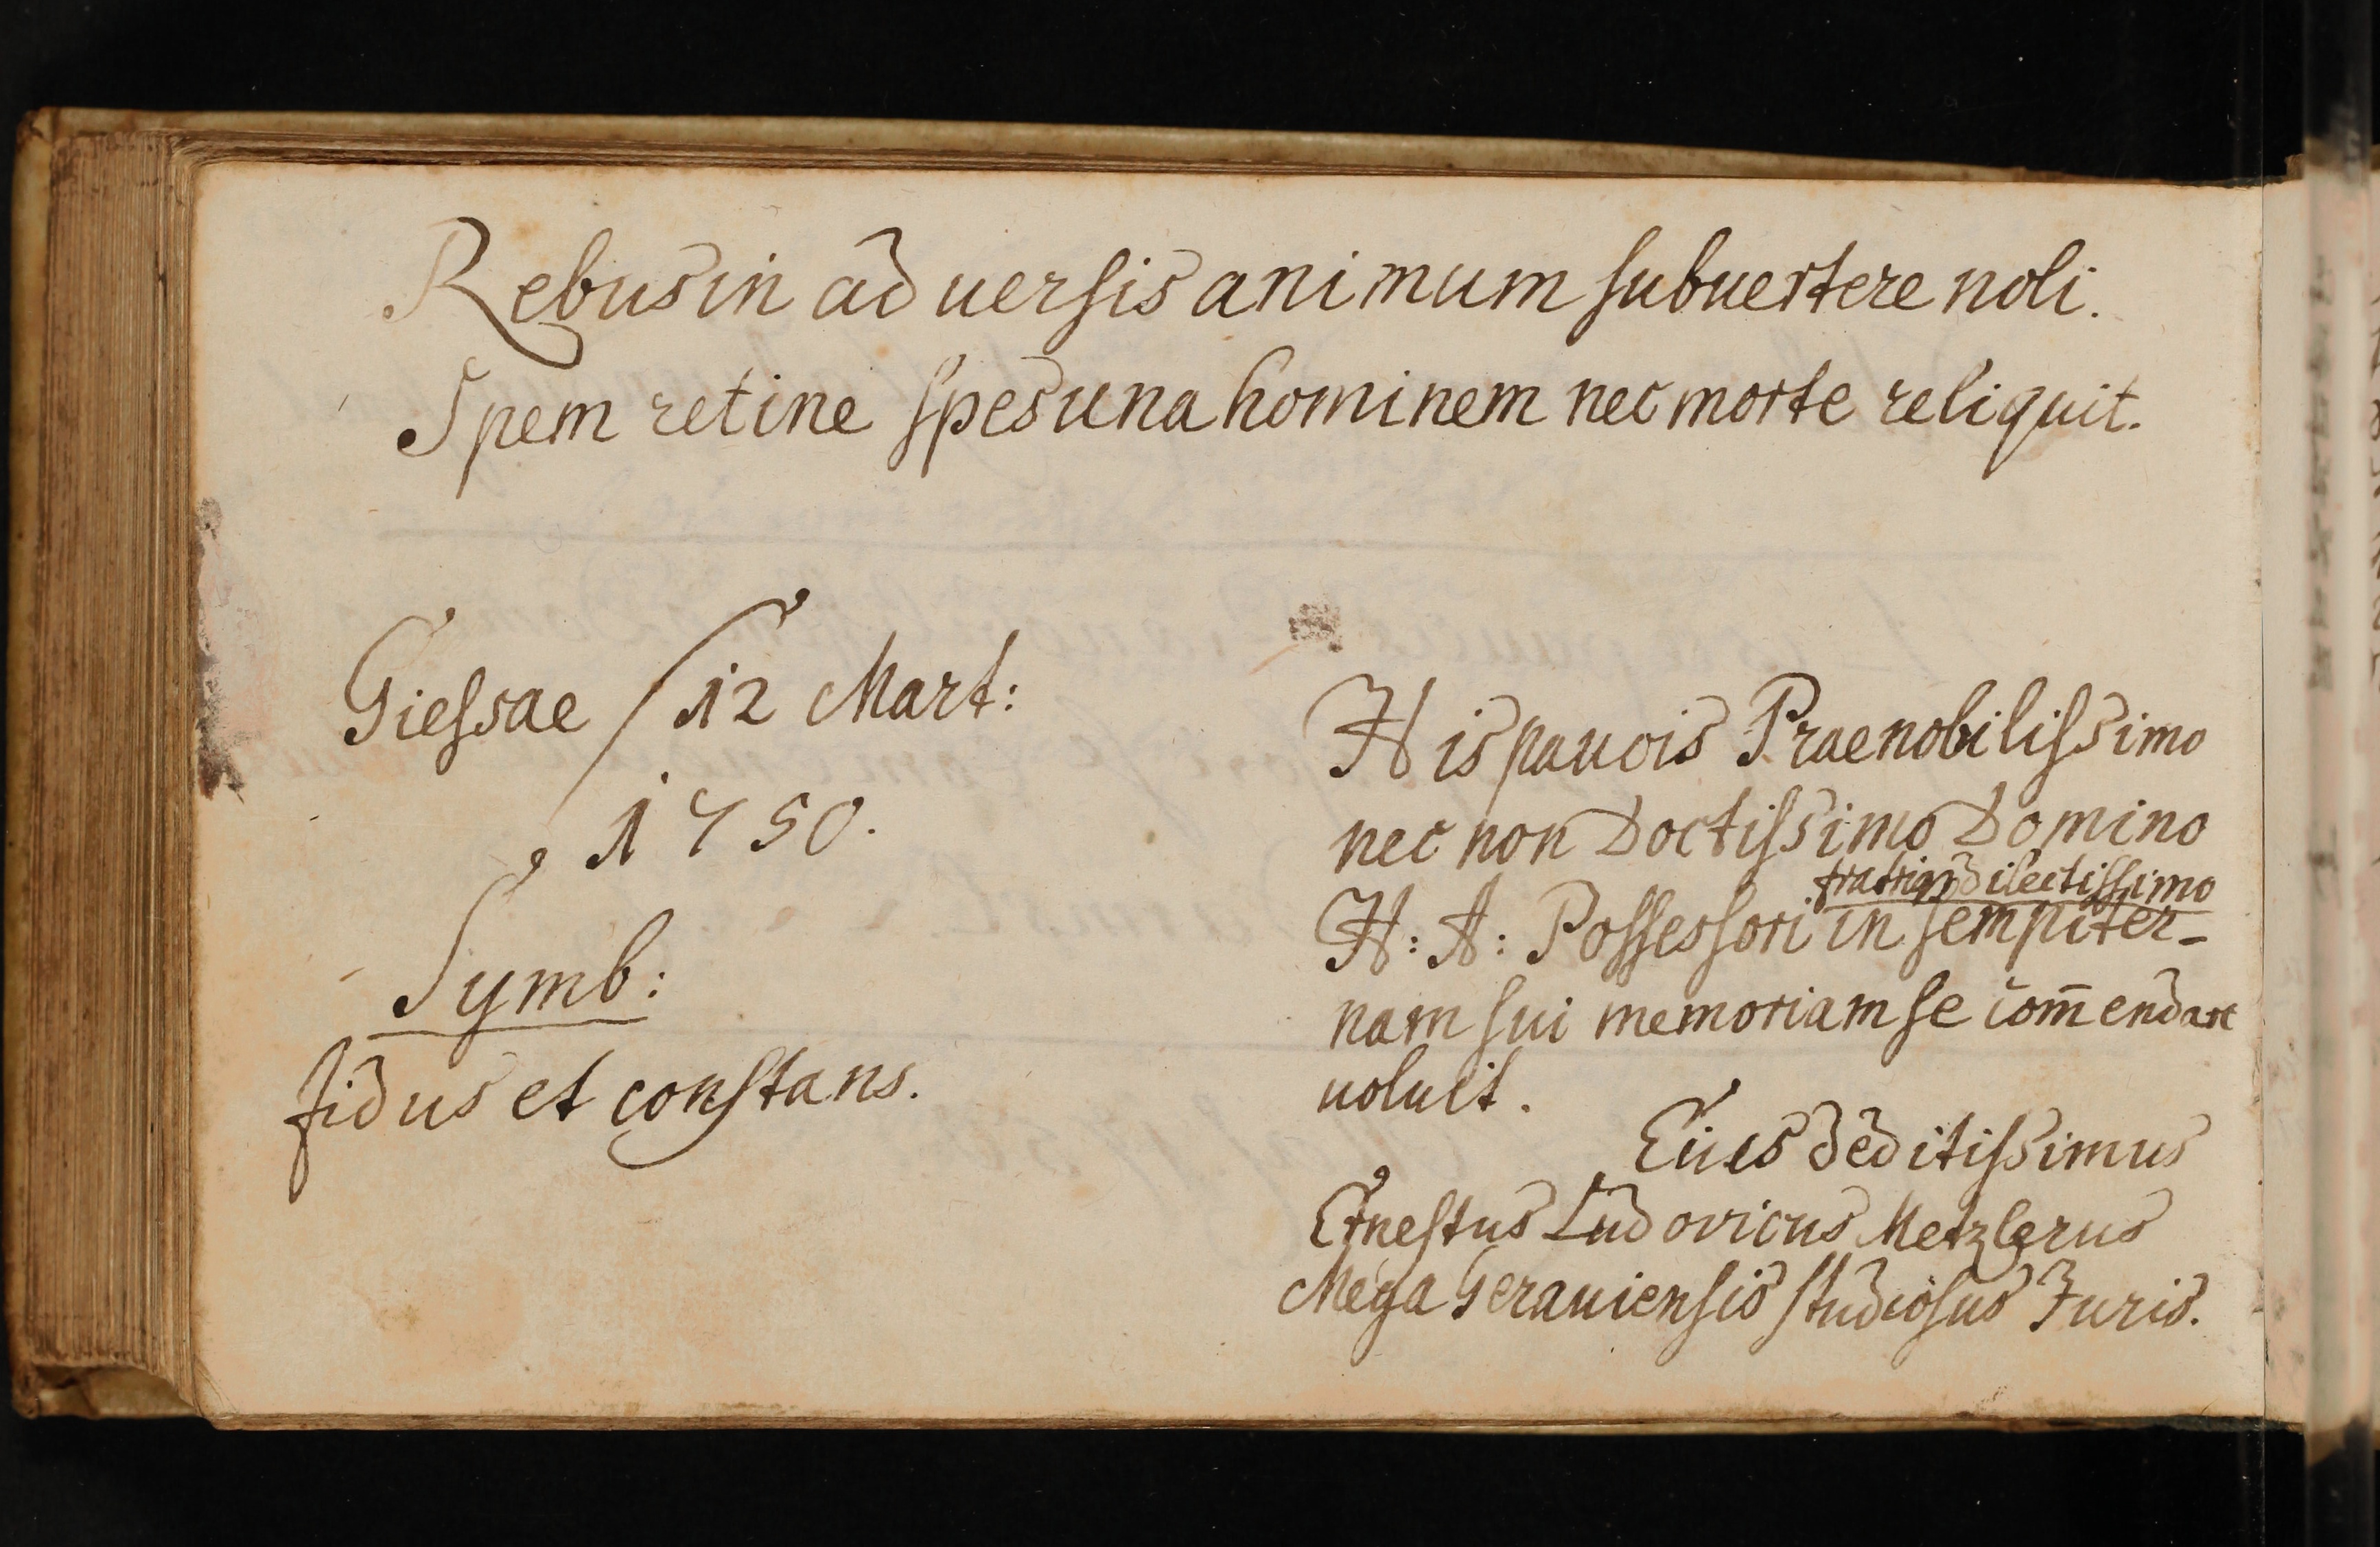 Rebus in aduersis animum subuertere noli.
Spem retine spes una hominem nec morte reliquit.
Giessae / 12 Mart:
1750.
Symb:
fidus et constans.
His pauois Praenobilissimo
nec non Doctissimo Domino
fratriq dilectissimo
H: A: Possessori in sempiter-
nam sui memoriam se com̄endare
uoluit.
Eius deditissimus
Ernestus Ludovicus Metzlerus
Mega Gerauiensis studiosus Juris.